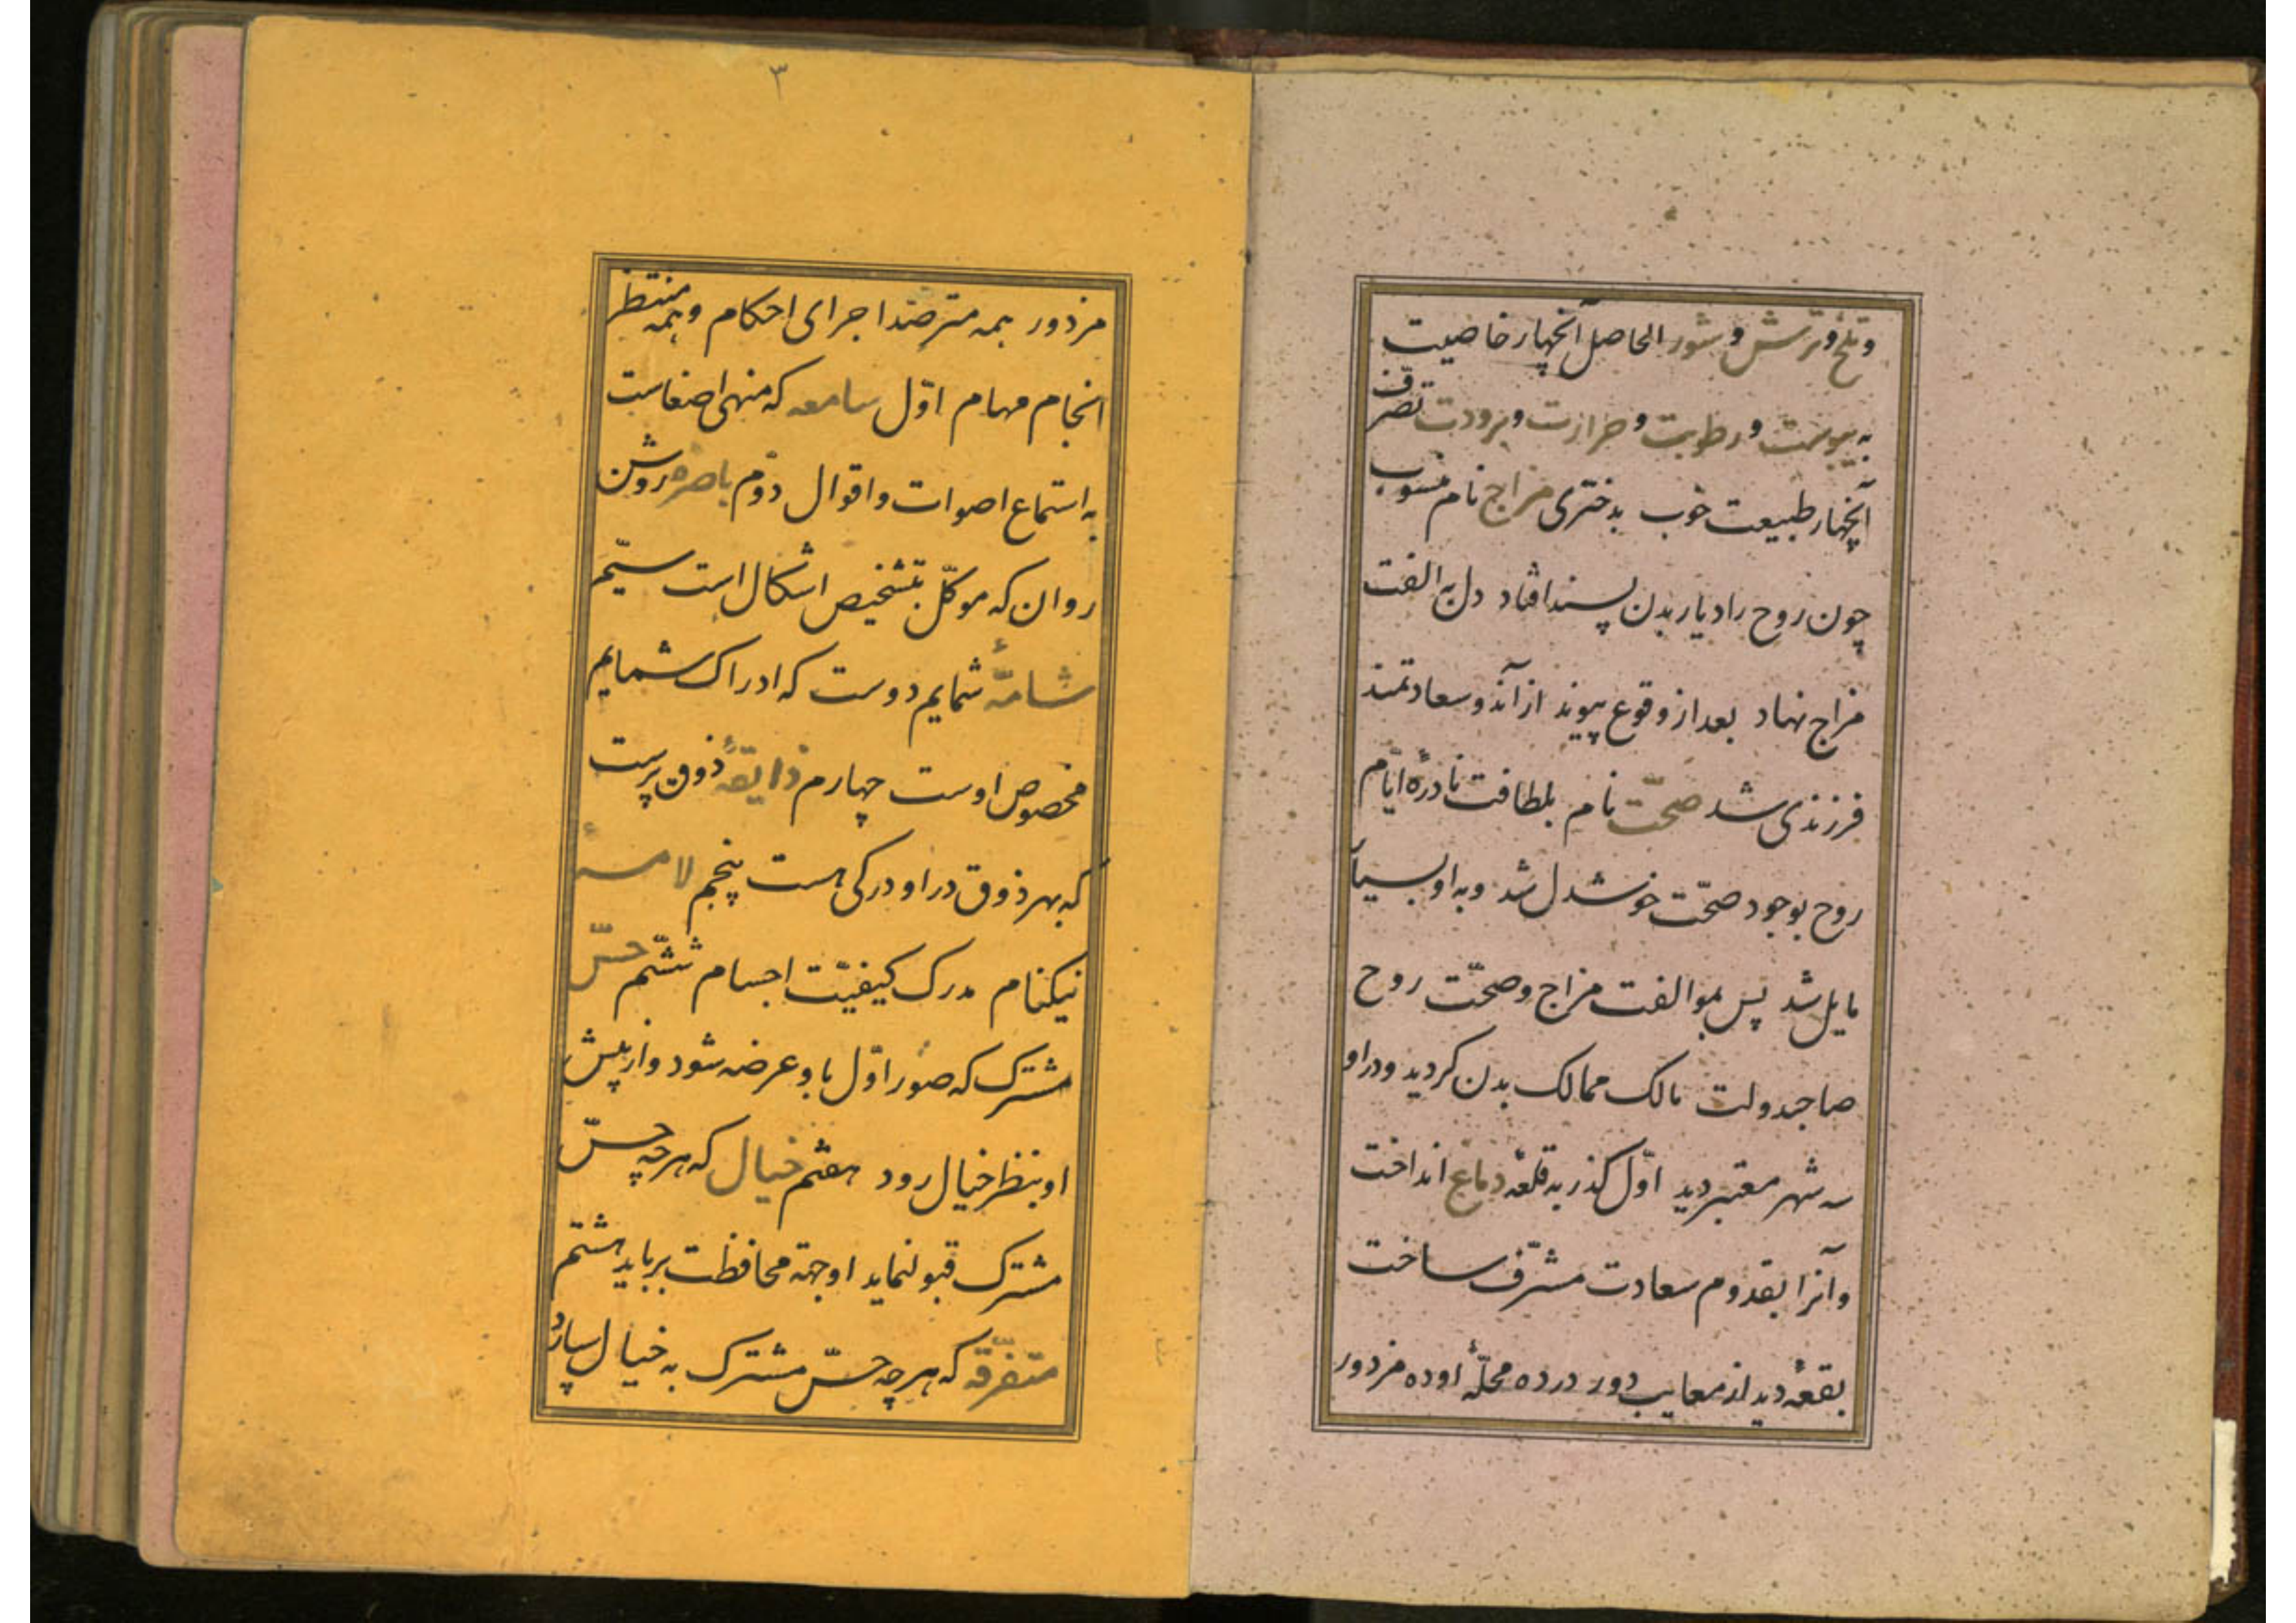 و تلخ و ترش و شور الحاصل آنچهار خاصیت
به یبوست و رطوبت و حرارت و برودت تصرف
آنچهار طبیعت خوب بدختری مزاج نام منسوب
چون روح را دیار بدن پسند افتاد دل به الفت
مزاج نهاد بعد از وقوع پیوند از آندو سعادتمند
فرزندی شد صحّت نام بلطافت نادرهٔ ایّام
روح بوجود صحّت خوشدل شد و به او بسیار
مایل شد پس بموالفت مزاج و صحّت روح
صاحبدولت مالک ممالک بدن کردید و در او
سه شهر معتبر دید اوّل کذر به قلعهٔ دماغ انداخت
و آنرا بقدوم سعادت مشرّف ساخت
بقعهٔ دید از معایب دور در ده محلّهٔ او ده مزدور
۳
مزدور همه مترصّد اجرای احکام و همه منتظر
انجام مهام اوّل سامعه که منهی اصغاست
به استماع اصوات و اقوال دوّم باصرهٔ روشن
روان که موکّل بتشخیص اشکال است سیّم
شامّهٔ شمایم دوست که ادراک شمایم
مخصوص اوست چهارم ذایقهٔ ذوق پرست
که بهر ذوق در او درکی هست پنجم لامسهٔ
نیکنام مدرک کیفیّت اجسام ششم حسّ
مشترک که صور اوّل باو عرضه شود و از پیش
او بنظر خیال رود هفتم خیال که هر چه حسّ
مشترک قبول نماید او جهة محافظت برباید هشتم
متفرّقه که هر چه حسّ مشترک به خیال سپارد